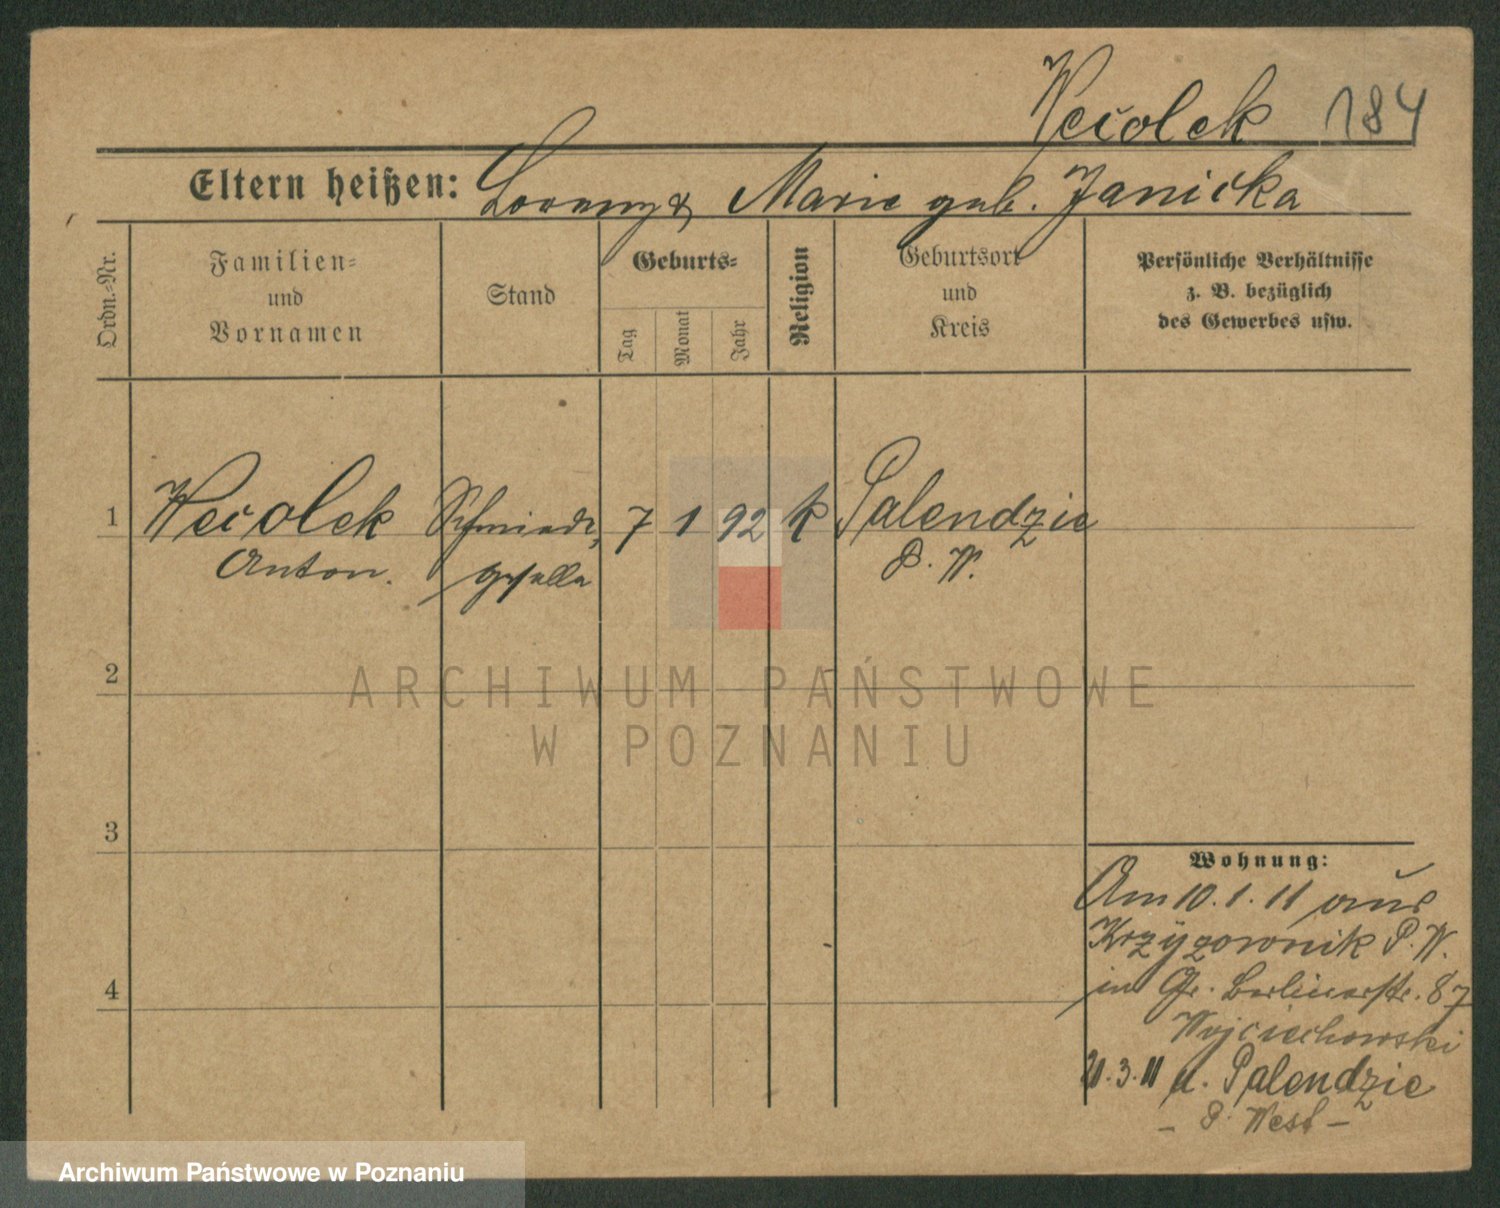 Weiolek 184
Eltern heißen: Lorenz & Marie geb. Janicka
Ordn.-Nr.
Familien-
und
Vornamen
Stand
Geburts-
Tag
Monat
Jahr
Religion
Geburtsort
und
Kreis
Persönliche Verhältnisse
z. B. bezüglich
des Gewerbes usw.
1 Weiolek Schmiede, 7 1 92 k Palendzie
Anton. geselle P. W.
2
ARCHIWUM PAŃSTWOWE
W POZNANIU
3
Wohnung:
Am 10.1.11 aus
Krzyzownik P. W.
4
in Gr. Berlinerstr. 87
Wojciechowski
21.3.11 n. Palendzie
- P. West -
Archiwum Państwowe w Poznaniu